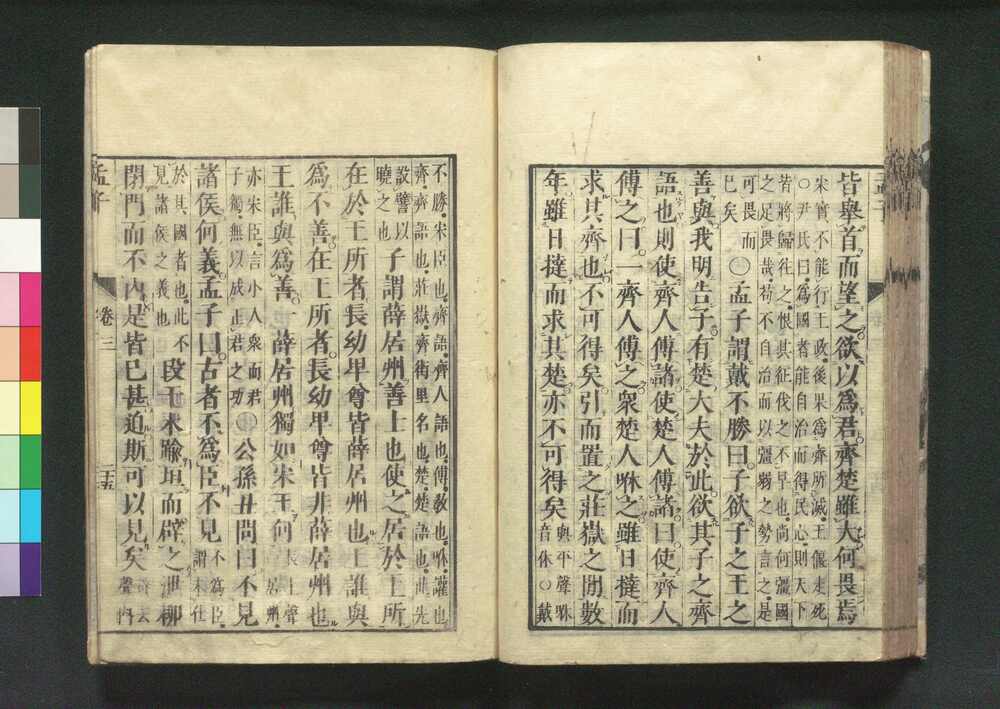 皆舉首而望之欲以爲君齊楚雖大何畏焉
宋實不能行王政後果爲齊所滅王偃走死
○尹氏曰爲國者能自治而得民心則天下
皆將歸往之恨其征伐之不早也尚何彊國
之足畏哉苟不自治而以彊弱之勢言之是
可畏而
已矣
○孟子謂戴不勝曰子欲子之王之
善與我明告子有楚大夫於此欲其子之齊
語也則使齊人傅諸使楚人傅諸曰使齊人
傅之曰一齊人傅之衆楚人咻之雖日撻而
求其齊也不可得矣引而置之莊嶽之閒數
年雖日撻而求其楚亦不可得矣
與平聲咻
音休○戴
不勝宋臣也齊語齊人語也傅教也咻讙也
齊齊語也莊嶽齊街里名也楚楚語也此先
設譬以
曉之也
子謂薛居州善士也使之居於王所
在於王所者長幼卑尊皆薛居州也王誰與
爲不善在王所者長幼卑尊皆非薛居州也
王誰與爲善一薛居州獨如宋王何
長上聲
居州
亦宋臣言小人衆而君
子獨無以成正君之功
○公孫丑問曰不見
諸侯何義孟子曰古者不爲臣不見
不爲臣
謂未仕
於其國者也此不
見諸侯之義也
段干木踰垣而辟之泄柳
閉門而不內是皆已甚迫斯可以見矣
孟子
卷三
二十五